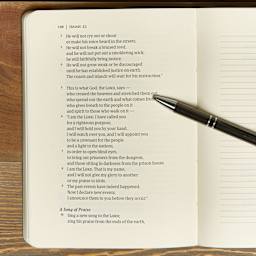 108 | ISAIAH 42
2 He will not cry out or shout
or make his voice heard in the streets.
3 He will not break a bruised reed,
and he will not put out a smoldering wick;
he will faithfully bring justice.
4 He will not grow weak or be discouraged
until he has established justice on earth.
The coasts and islands will wait for his instruction."
5 This is what God, the LORD, says —
who created the heavens and stretched them out,
who spread out the earth and what comes from
who gives breath to the people on it
and spirit to those who walk on it —
6 "I am the LORD. I have called you
for a righteous purpose,
and I will hold you by your hand.
I will watch over you, and I will appoint you
to be a covenant for the people
and a light to the nations,
7 in order to open blind eyes,
to bring out prisoners from the dungeon,
and those sitting in darkness from the prison house.
8 I am the LORD. That is my name,
and I will not give my glory to another
or my praise to idols.
9 The past events have indeed happened.
Now I declare new events;
I announce them to you before they occur."
A Song of Praise
10 Sing a new song to the LORD;
sing his praise from the ends of the earth,